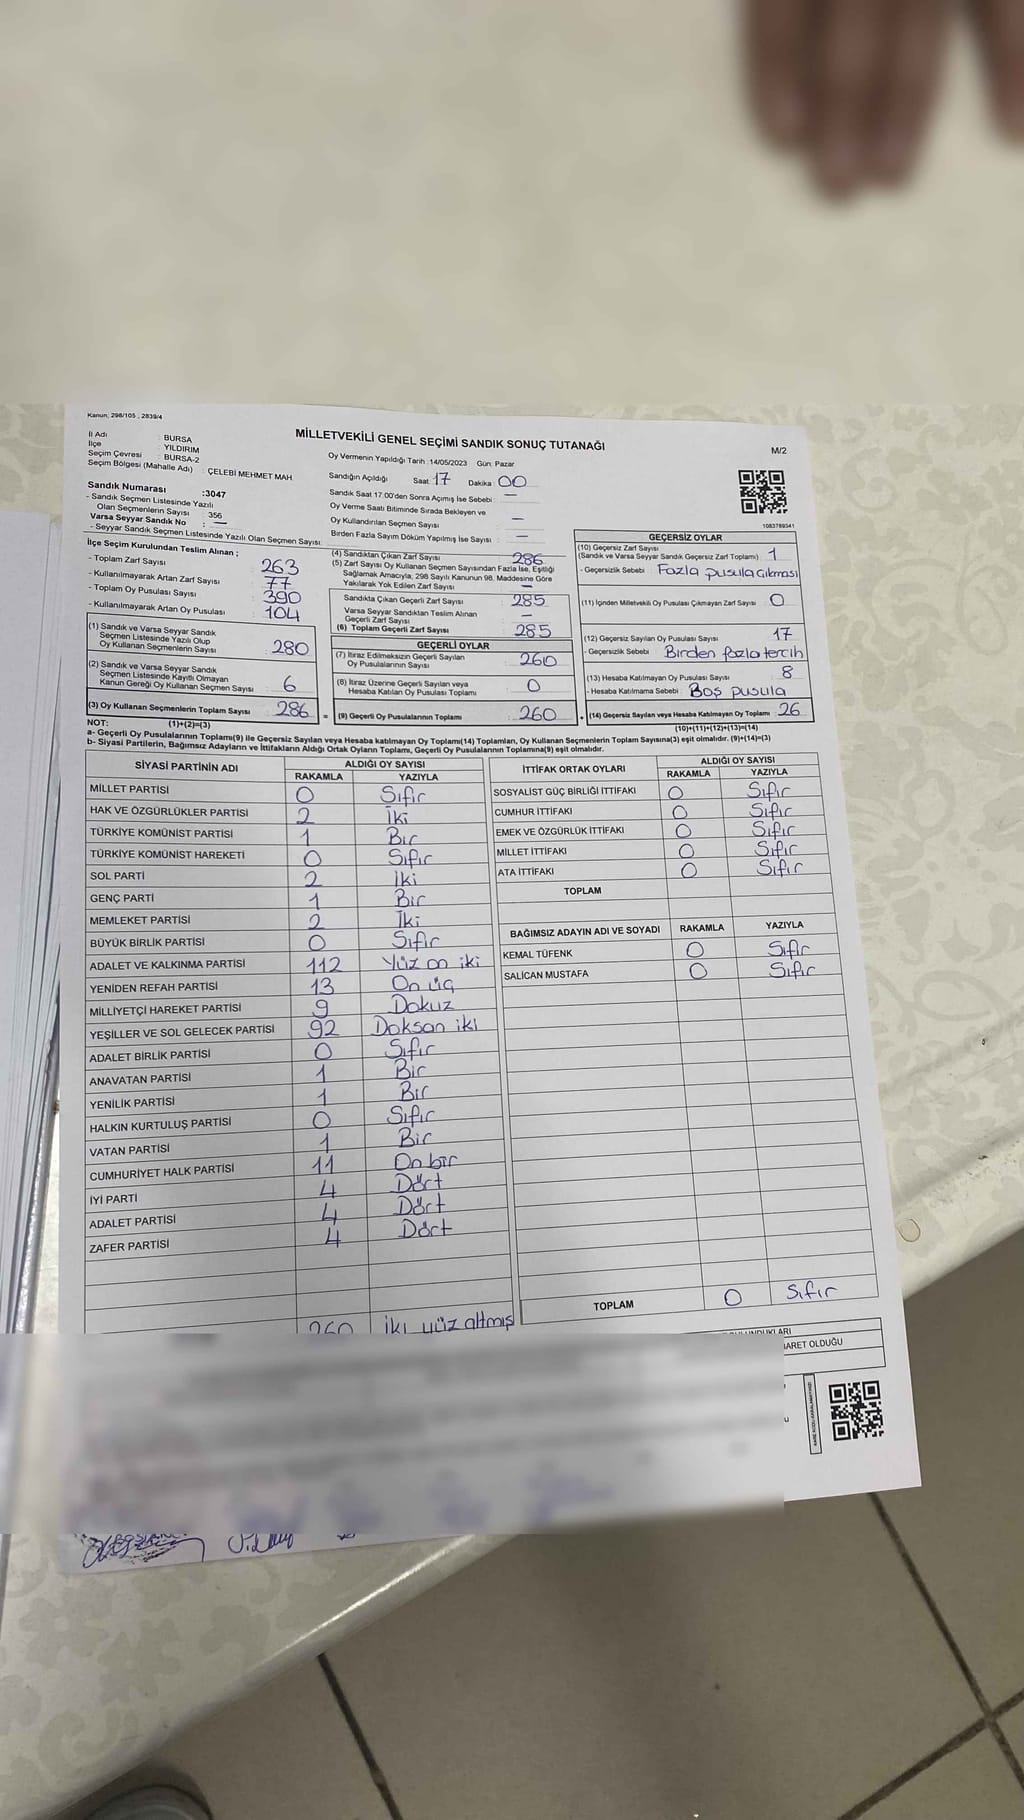 Kanun; 298/105 , 2839/4
MİLLETVEKİLİ GENEL SEÇİMİ SANDIK SONUÇ TUTANAĞI
M/2
İl Adı : BURSA
İlçe : YILDIRIM
Seçim Çevresi : BURSA-2
Seçim Bölgesi (Mahalle Adı) : ÇELEBİ MEHMET MAH
Sandık Numarası :3047
- Sandık Seçmen Listesinde Yazılı
Olan Seçmenlerin Sayısı : 356
Varsa Seyyar Sandık No : —
- Seyyar Sandık Seçmen Listesinde Yazılı Olan Seçmen Sayısı:
Oy Vermenin Yapıldığı Tarih :14/05/2023 Gün: Pazar
Sandığın Açıldığı Saat: 17 Dakika 00
Sandık Saat 17.00'den Sonra Açımış İse Sebebi : —
Oy Verme Saati Bitiminde Sırada Bekleyen ve
Oy Kullandırılan Seçmen Sayısı : —
Birden Fazla Sayım Döküm Yapılmış İse Sayısı : —
1083789341
İlçe Seçim Kurulundan Teslim Alınan ;
- Toplam Zarf Sayısı : 263
- Kullanılmayarak Artan Zarf Sayısı : 77
- Toplam Oy Pusulası Sayısı : 390
- Kullanılmayarak Artan Oy Pusulası : 104
(1) Sandık ve Varsa Seyyar Sandık
Seçmen Listesinde Yazılı Olup
Oy Kullanan Seçmenlerin Sayısı : 280
(2) Sandık ve Varsa Seyyar Sandık
Seçmen Listesinde Kayıtlı Olmayan
Kanun Gereği Oy Kullanan Seçmen Sayısı : 6
(3) Oy Kullanan Seçmenlerin Toplam Sayısı : 286
(1)+(2)=(3)
(4) Sandıktan Çıkan Zarf Sayısı : 286
(5) Zarf Sayısı Oy Kullanan Seçmen Sayısından Fazla İse, Eşitliği
Sağlamak Amacıyla, 298 Sayılı Kanunun 98. Maddesine Göre
Yakılarak Yok Edilen Zarf Sayısı : —
Sandıkta Çıkan Geçerli Zarf Sayısı : 285
Varsa Seyyar Sandıktan Teslim Alınan
Geçerli Zarf Sayısı : —
(6) Toplam Geçerli Zarf Sayısı : 285
GEÇERLİ OYLAR
(7) İtiraz Edilmeksizin Geçerli Sayılan
Oy Pusulalarının Sayısı : 260
(8) İtiraz Üzerine Geçerli Sayılan veya
Hesaba Katılan Oy Pusulası Toplamı : 0
= (9) Geçerli Oy Pusulalarının Toplamı : 260
GEÇERSİZ OYLAR
(10) Geçersiz Zarf Sayısı
(Sandık ve Varsa Seyyar Sandık Geçersiz Zarf Toplamı) : 1
- Geçersizlik Sebebi : Fazla pusula çıkması
(11) İçinden Milletvekili Oy Pusulası Çıkmayan Zarf Sayısı : 0
(12) Geçersiz Sayılan Oy Pusulası Sayısı : 17
- Geçersizlik Sebebi : Birden fazla tercih
(13) Hesaba Katılmayan Oy Pusulası Sayısı : 8
- Hesaba Katılmama Sebebi : Boş pusula
+ (14) Geçersiz Sayılan veya Hesaba Katılmayan Oy Toplamı : 26
(10)+(11)+(12)+(13)=(14)
NOT:
a- Geçerli Oy Pusulalarının Toplamı(9) ile Geçersiz Sayılan veya Hesaba katılmayan Oy Toplamı(14) Toplamları, Oy Kullanan Seçmenlerin Toplam Sayısına(3) eşit olmalıdır. (9)+(14)=(3)
b- Siyasi Partilerin, Bağımsız Adayların ve İttifakların Aldığı Ortak Oyların Toplamı, Geçerli Oy Pusulalarının Toplamına(9) eşit olmalıdır.
SİYASİ PARTİNİN ADI ALDIĞI OY SAYISI
RAKAMLA YAZIYLA
MİLLET PARTİSİ 0 Sıfır
HAK VE ÖZGÜRLÜKLER PARTİSİ 2 İki
TÜRKİYE KOMÜNİST PARTİSİ 1 Bir
TÜRKİYE KOMÜNİST HAREKETİ 0 Sıfır
SOL PARTİ 2 İki
GENÇ PARTİ 1 Bir
MEMLEKET PARTİSİ 2 İki
BÜYÜK BİRLİK PARTİSİ 0 Sıfır
ADALET VE KALKINMA PARTİSİ 112 Yüz on iki
YENİDEN REFAH PARTİSİ 13 On üç
MİLLİYETÇİ HAREKET PARTİSİ 9 Dokuz
YEŞİLLER VE SOL GELECEK PARTİSİ 92 Doksan iki
ADALET BİRLİK PARTİSİ 0 Sıfır
ANAVATAN PARTİSİ 1 Bir
YENİLİK PARTİSİ 1 Bir
HALKIN KURTULUŞ PARTİSİ 0 Sıfır
VATAN PARTİSİ 1 Bir
CUMHURİYET HALK PARTİSİ 11 On bir
İYİ PARTİ 4 Dört
ADALET PARTİSİ 4 Dört
ZAFER PARTİSİ 4 Dört
260 İki yüz altmış
İTTİFAK ORTAK OYLARI ALDIĞI OY SAYISI
RAKAMLA YAZIYLA
SOSYALİST GÜÇ BİRLİĞİ İTTİFAKI 0 Sıfır
CUMHUR İTTİFAKI 0 Sıfır
EMEK VE ÖZGÜRLÜK İTTİFAKI 0 Sıfır
MİLLET İTTİFAKI 0 Sıfır
ATA İTTİFAKI 0 Sıfır
TOPLAM
BAĞIMSIZ ADAYIN ADI VE SOYADI RAKAMLA YAZIYLA
KEMAL TÜFENK 0 Sıfır
SALİCAN MUSTAFA 0 Sıfır
TOPLAM 0 Sıfır
OLDUĞU